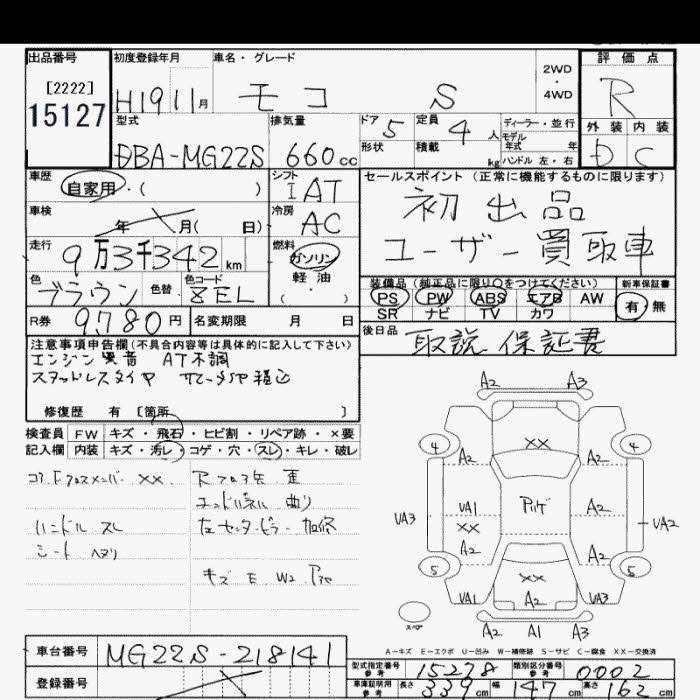 出品番号 初度登録年月 車名・グレード 2WD・4WD 評価点
[2222] 15127 H19 11月 モコ S R
型式 排気量 ドア 5 定員 4人 ディーラー・並行 外装 内装
モデル年式 年
形状 積載 kg ハンドル 左・右
DBA-MG22S 660cc D C
車歴 自家用・( ) シフト IAT セールスポイント (正常に機能するものに限ります)
車検 年 月( 日) 冷房 AC 初出品
走行 9万3千342km 燃料 ガソリン 軽油 ( ・ ) ユーザー買取車
色 ブラウン 色替 色コード ZEL
装備品 (純正品に限り○をつけてください) 新車保証書
PS PW ABS エアB AW 有・無
SR ナビ TV カワ
R券 9,780円 名変期限 月 日
後日品 取説 保証書
注意事項申告欄(不具合内容等は具体的に記入して下さい)
エンジン異音 AT不調
スタッドレスタイヤ
修復歴 有 [箇所 ]
検査員 FW キズ・飛石・ヒビ割・リペア跡・×要
記入欄 内装 キズ・汚レ・コゲ・穴・スレ・キレ・破レ
コアF クロスメンバー ××
Rフロア左 歪
エンドパネル 曲り
ハンドル スレ
左センターピラー 加修
シート ヘタリ
キズ E W2
A2 A3
4 ×× 4
A2 A2
UA3 UA1 A2 UA2
××
A2 A2
5 ×× 5
UA1 A2 UA3
スペア
A2 A1 A3
A-キズ E-エクボ U-凹み W-補修跡 S-サビ C-腐食 XX-交換済
車台番号 MG22S-218141
登録番号
型式指定番号 参考 15278 類別区分番号 参考 0002
車庫証明用 参考 長さ 339cm 幅 147cm 高さ 162cm